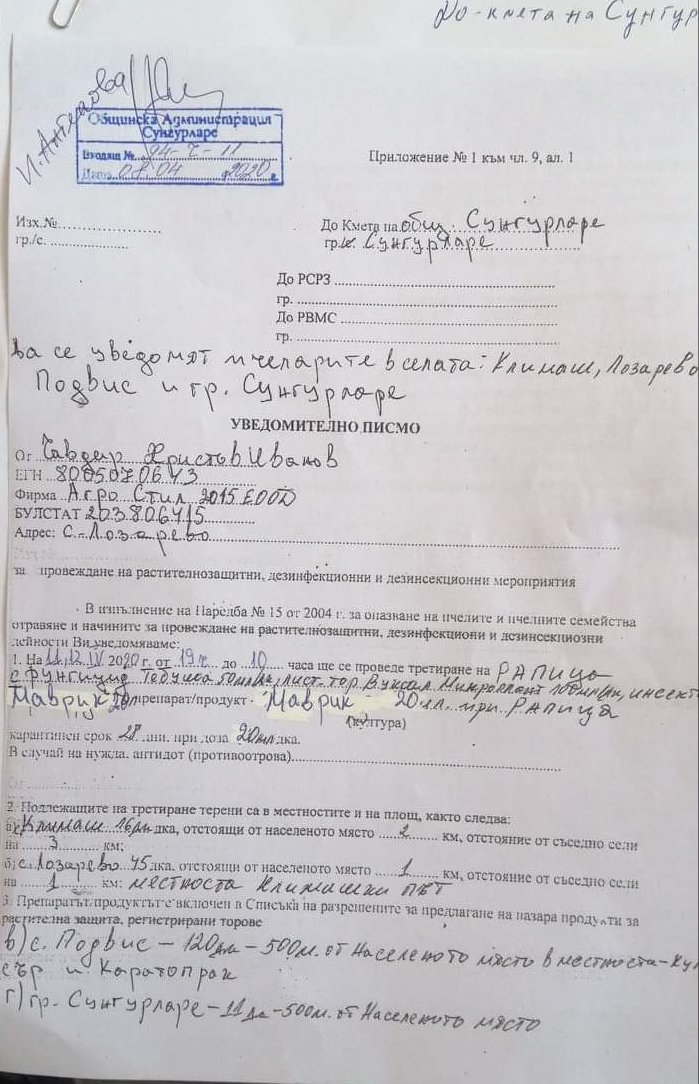 До - кмета на Сунгур
И. Ангелова
Общинска Администрация
Сунгурларе
Входящ № 94-Ч-11
Дата 08.04 2020 г.
Приложение № 1 към чл. 9, ал. 1
Изх.№
До Кмета на общ. Сунгурларе
гр./с.
гр. Сунгурларе
До РСРЗ
гр.
До РВМС
гр.
да се уведомят пчеларите в селата: Климаш, Лозарево
Подвис и гр. Сунгурларе
УВЕДОМИТЕЛНО ПИСМО
От Чавдар Христов Иванов
ЕГН 8005070643
Фирма Агро Стил 2015 ЕООД
БУЛСТАТ 203806415
Адрес: с. Лозарево
за провеждане на растителнозащитни, дезинфекционни и дезинсекционни мероприятия
В изпълнение на Наредба № 15 от 2004 г. за опазване на пчелите и пчелните семейства
отравяне и начините за провеждане на растителнозащитни, дезинфекциони и дезинсекциозни
дейности Ви уведомяваме:
1. На 11,12 IV 2020 г. от 19 ч. до 10 часа ще се проведе третиране на РАПИЦА
с фунгицид 50мл/дк, лист. тор Вуксал Микроплант инсект
Маврик 20мл препарат/продукт - Маврик 20мл. при РАПИЦА
(култура)
карантинен срок 28 дни. при доза 20мл дка.
В случай на нужда. антидот (противоотрова)
2. Подлежащите на третиране терени са в местностите и на площ, както следва:
а) Климаш 16 дка, отстоящи от населеното място 2 км, отстояние от съседно сели
на 3 км;
б) с. Лозарево 45 дка, отстоящи от населеното място 1 км, отстояние от съседно сели
на 1 км: местноста Климашки път
3. Препаратът/продуктът е включен в Списъка на разрешените за предлагане на пазара продукти за
растителна защита, регистрирани торове
в) с. Подвис - 120дка - 500м. от населеното място в местноста - Ку
сър и Каратопрак
г) гр. Сунгурларе - 11 дка - 500м. от населеното място